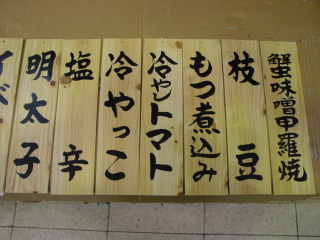 蟹味噌甲羅焼
枝豆
もつ煮込み
冷やしトマト
冷やっこ
塩辛
明太子